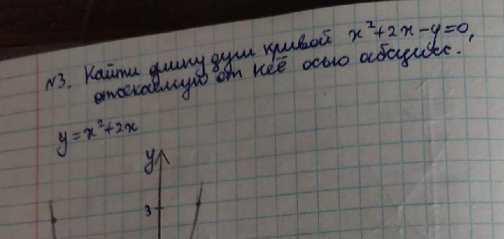 N3. Найти длину дуги кривой x²+2x-y=0,
отсекаемую от неё осью абсцисс.
y=x²+2x
y
3